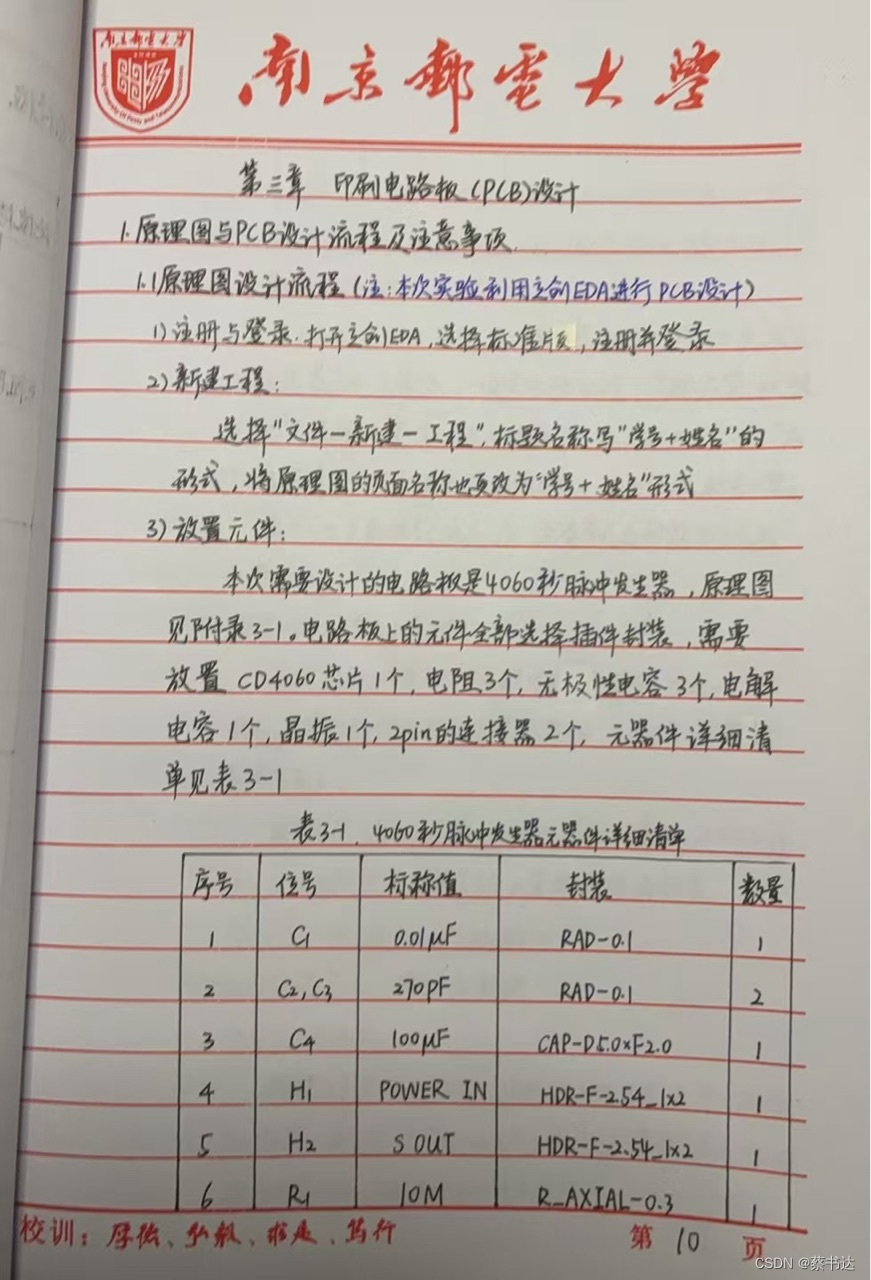 南京邮电大学
南京郵電大學
第三章 印刷电路板(PCB)设计
1.原理图与PCB设计流程及注意事项.
1.1原理图设计流程(注:本次实验利用立创EDA进行PCB设计)
1)注册与登录.打开立创EDA,选择标准版,注册并登录
2)新建工程:
选择"文件-新建-工程",标题名称写"学号+姓名"的
形式,将原理图的页面名称也更改为"学号+姓名"形式
3)放置元件:
本次需要设计的电路板是4060秒脉冲发生器,原理图
见附录3-1。电路板上的元件全部选择插件封装,需要
放置CD4060芯片1个,电阻3个,无极性电容3个,电解
电容1个,晶振1个,2pin的连接器2个,元器件详细清
单见表3-1
表3-1.4060秒脉冲发生器元器件详细清单
序号 位号 标称值 封装 数量
1 C1 0.01μF RAD-0.1 1
2 C2,C3 270PF RAD-0.1 2
3 C4 100μF CAP-D5.0×F2.0 1
4 H1 POWER IN HDR-F-2.54_1x2 1
5 H2 S OUT HDR-F-2.54_1x2 1
6 R1 10M R_AXIAL-0.3 1
校训:厚德、弘毅、求是、笃行
第 10 页
CSDN @蔡书达